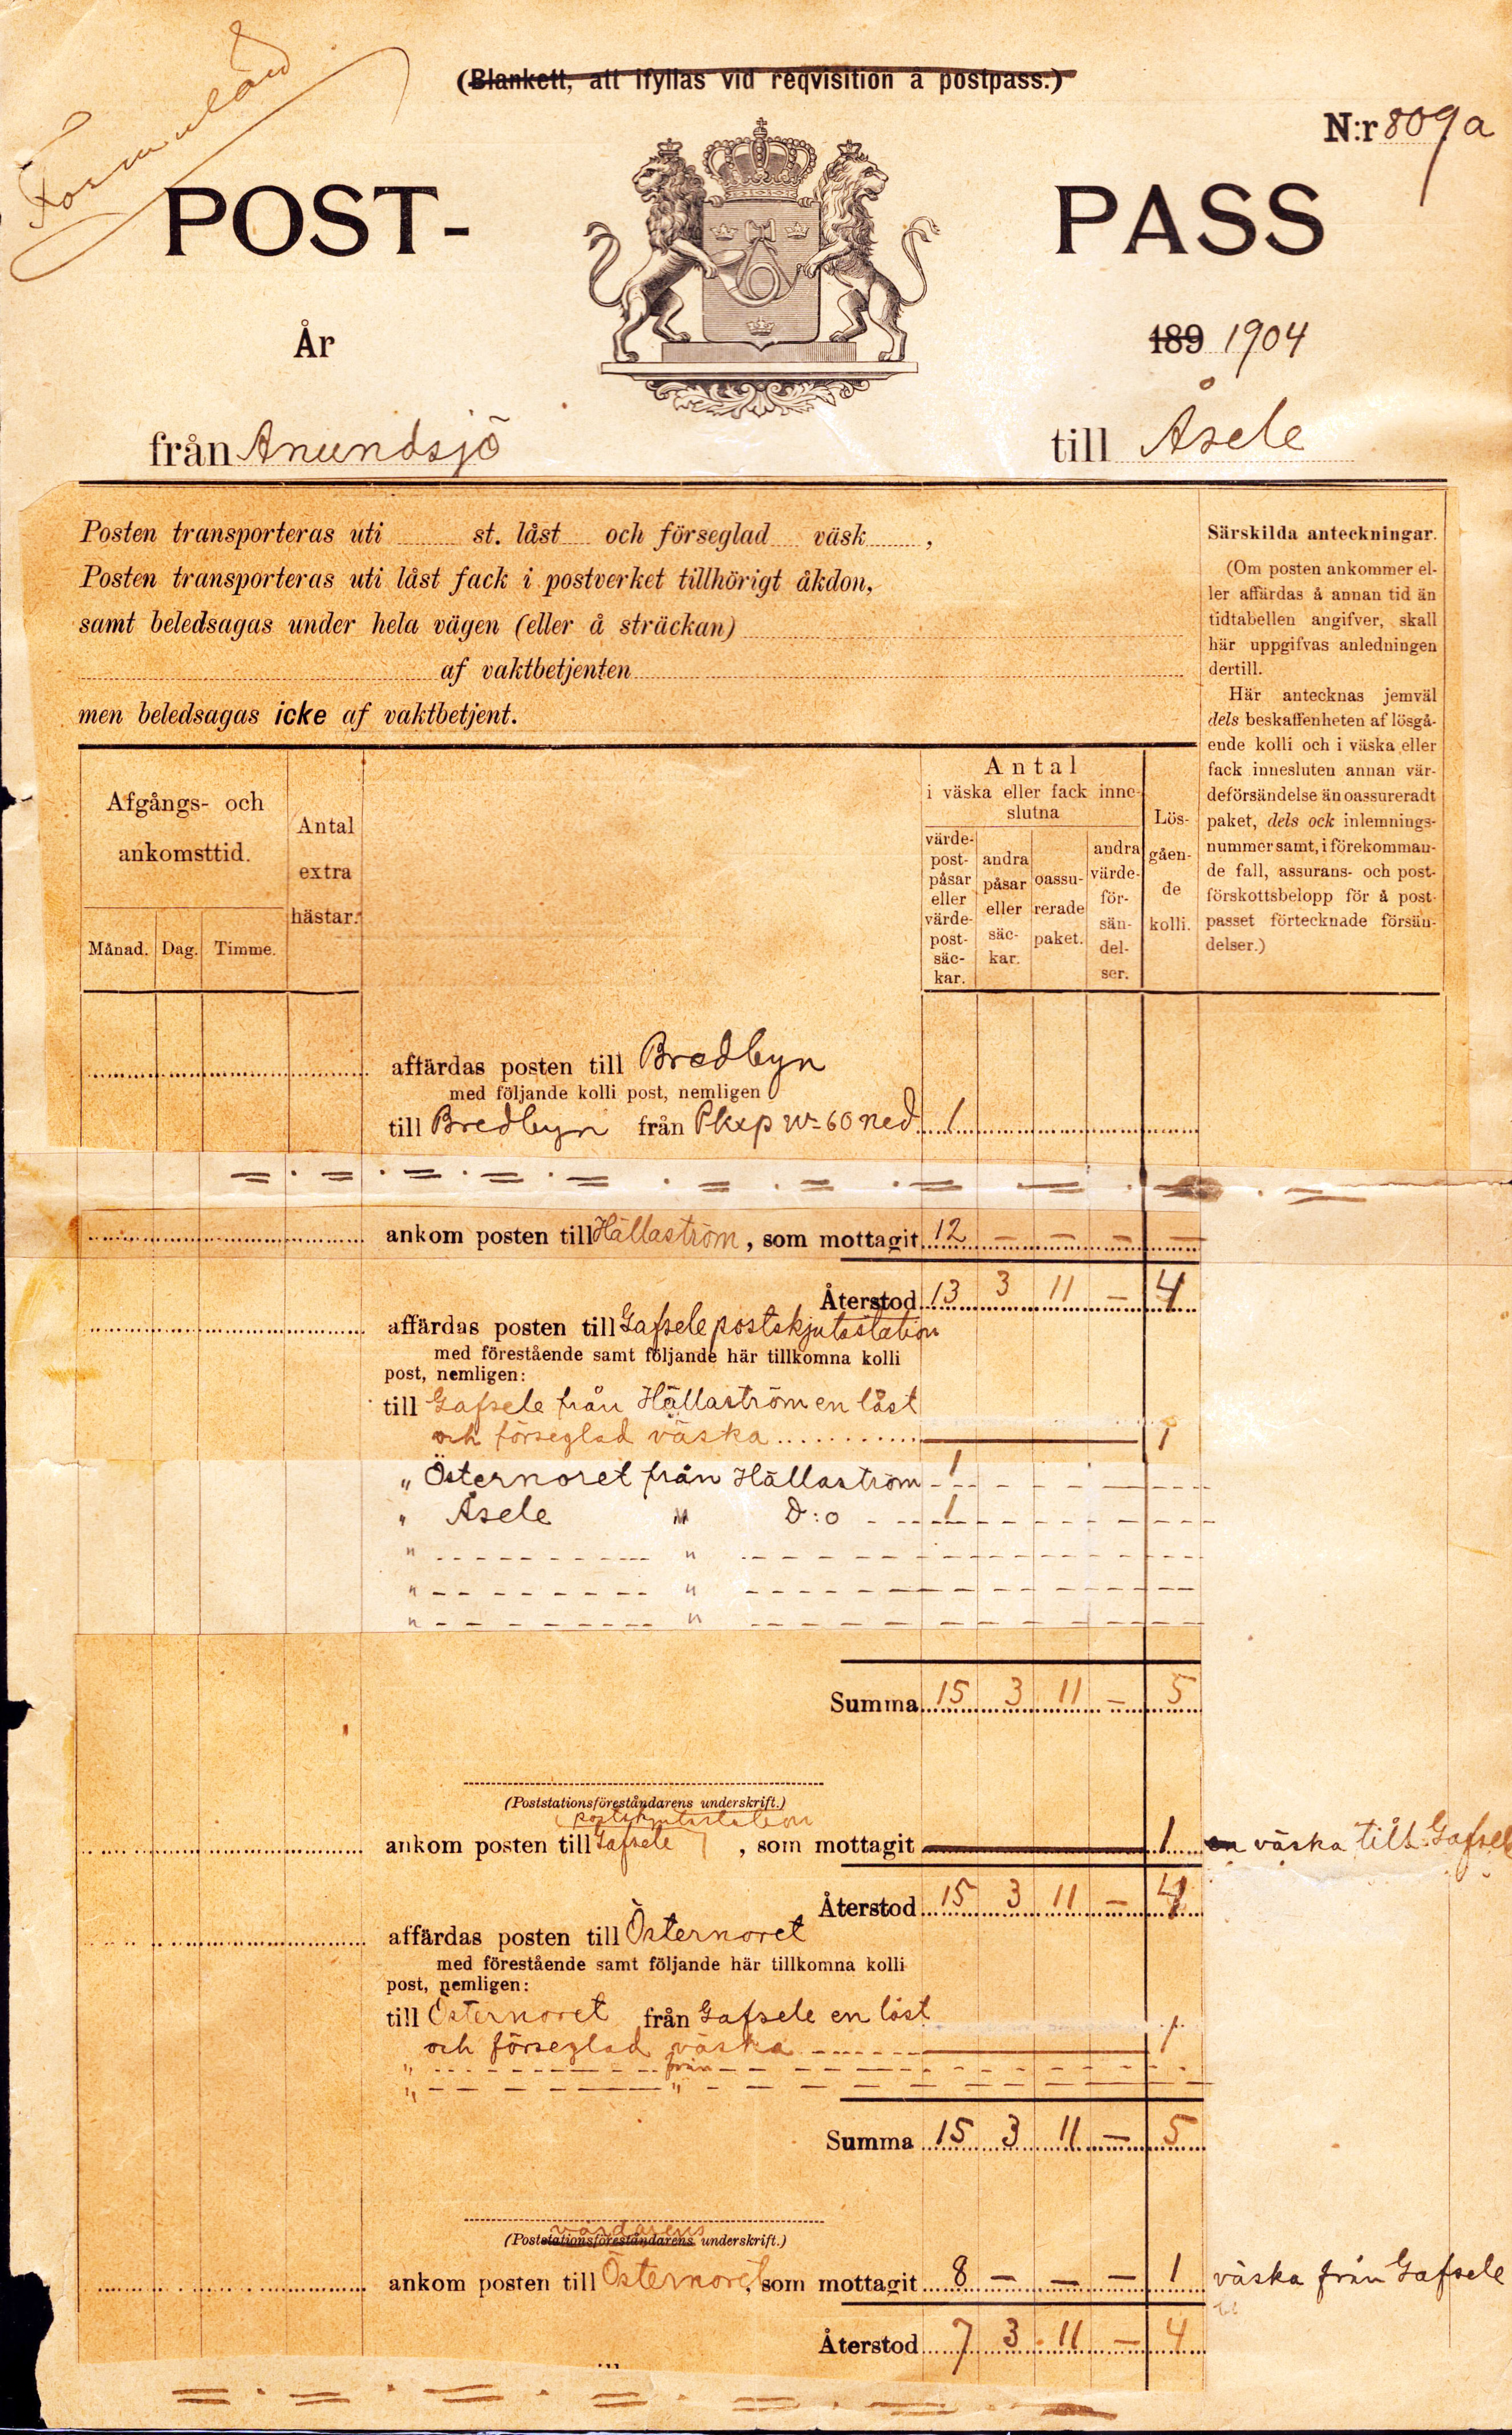 Formulär
(Blankett, att ifyllas vid reqvisition å postpass.)
N:r 809a
POST- PASS
År 189 1904
från Anundsjö till Åsele
Posten transporteras uti st. låst och förseglad väsk ,
Posten transporteras uti låst fack i postverket tillhörigt åkdon,
samt beledsagas under hela vägen (eller å sträckan)
af vaktbetjenten
men beledsagas icke af vaktbetjent.
Särskilda anteckningar.
(Om posten ankommer el-
ler affärdas å annan tid än
tidtabellen angifver, skall
här uppgifvas anledningen
dertill.
Här antecknas jemväl
dels beskaffenheten af lösgå-
ende kolli och i väska eller
fack innesluten annan vär-
deförsändelse än oassureradt
paket, dels ock inlemnings-
nummer samt, i förekomman-
de fall, assurans- och post-
förskottsbelopp för å post-
passet förtecknade försän-
delser.)
Afgångs- och
ankomsttid.
Månad. Dag. Timme.
Antal
extra
hästar.
Antal
i väska eller fack inne-
slutna
värde-
post-
påsar
eller
värde-
post-
säc-
kar.
andra
påsar
eller
säc-
kar.
oassu-
rerade
paket.
andra
värde-
för-
sän-
del-
ser.
Lös-
gåen-
de
kolli.
affärdas posten till Bredbyn
med följande kolli post, nemligen
till Bredbyn från Pkxp No 60 ned 1
ankom posten till Hällaström, som mottagit 12 — — — —
Återstod 13 3 11 — 4
affärdas posten till Gafsele postskjutsstation
med förestående samt följande här tillkomna kolli
post, nemligen:
till Gafsele från Hällaström en låst
och förseglad väska 1
" Östernoret från Hällaström 1
" Åsele " D:o 1
" "
" "
" "
Summa 15 3 11 — 5
(Poststationsföreståndarens underskrift.)
postskjutsstation
ankom posten till Gafsele , som mottagit 1 en väska till Gafsele
Återstod 15 3 11 — 4
affärdas posten till Östernoret
med förestående samt följande här tillkomna kolli
post, nemligen:
till Östernoret från Gafsele en låst
och förseglad väska 1
" från
" "
Summa 15 3 11 — 5
vårdarens
(Poststationsföreståndarens underskrift.)
ankom posten till Östernoret, som mottagit 8 — — — 1 väska från Gafsele
Återstod 7 3 11 — 4